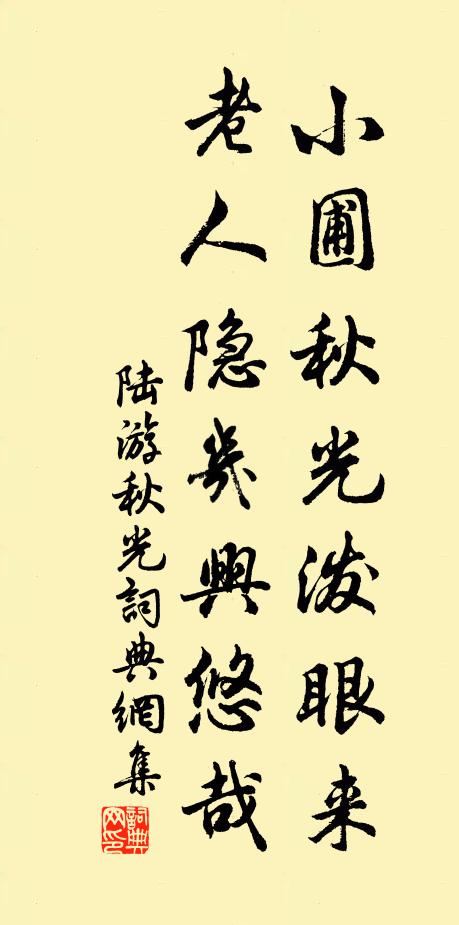 小圃秋光泼眼来
老人隐幾興悠哉
陆游秋光詞典網集
詞典网印